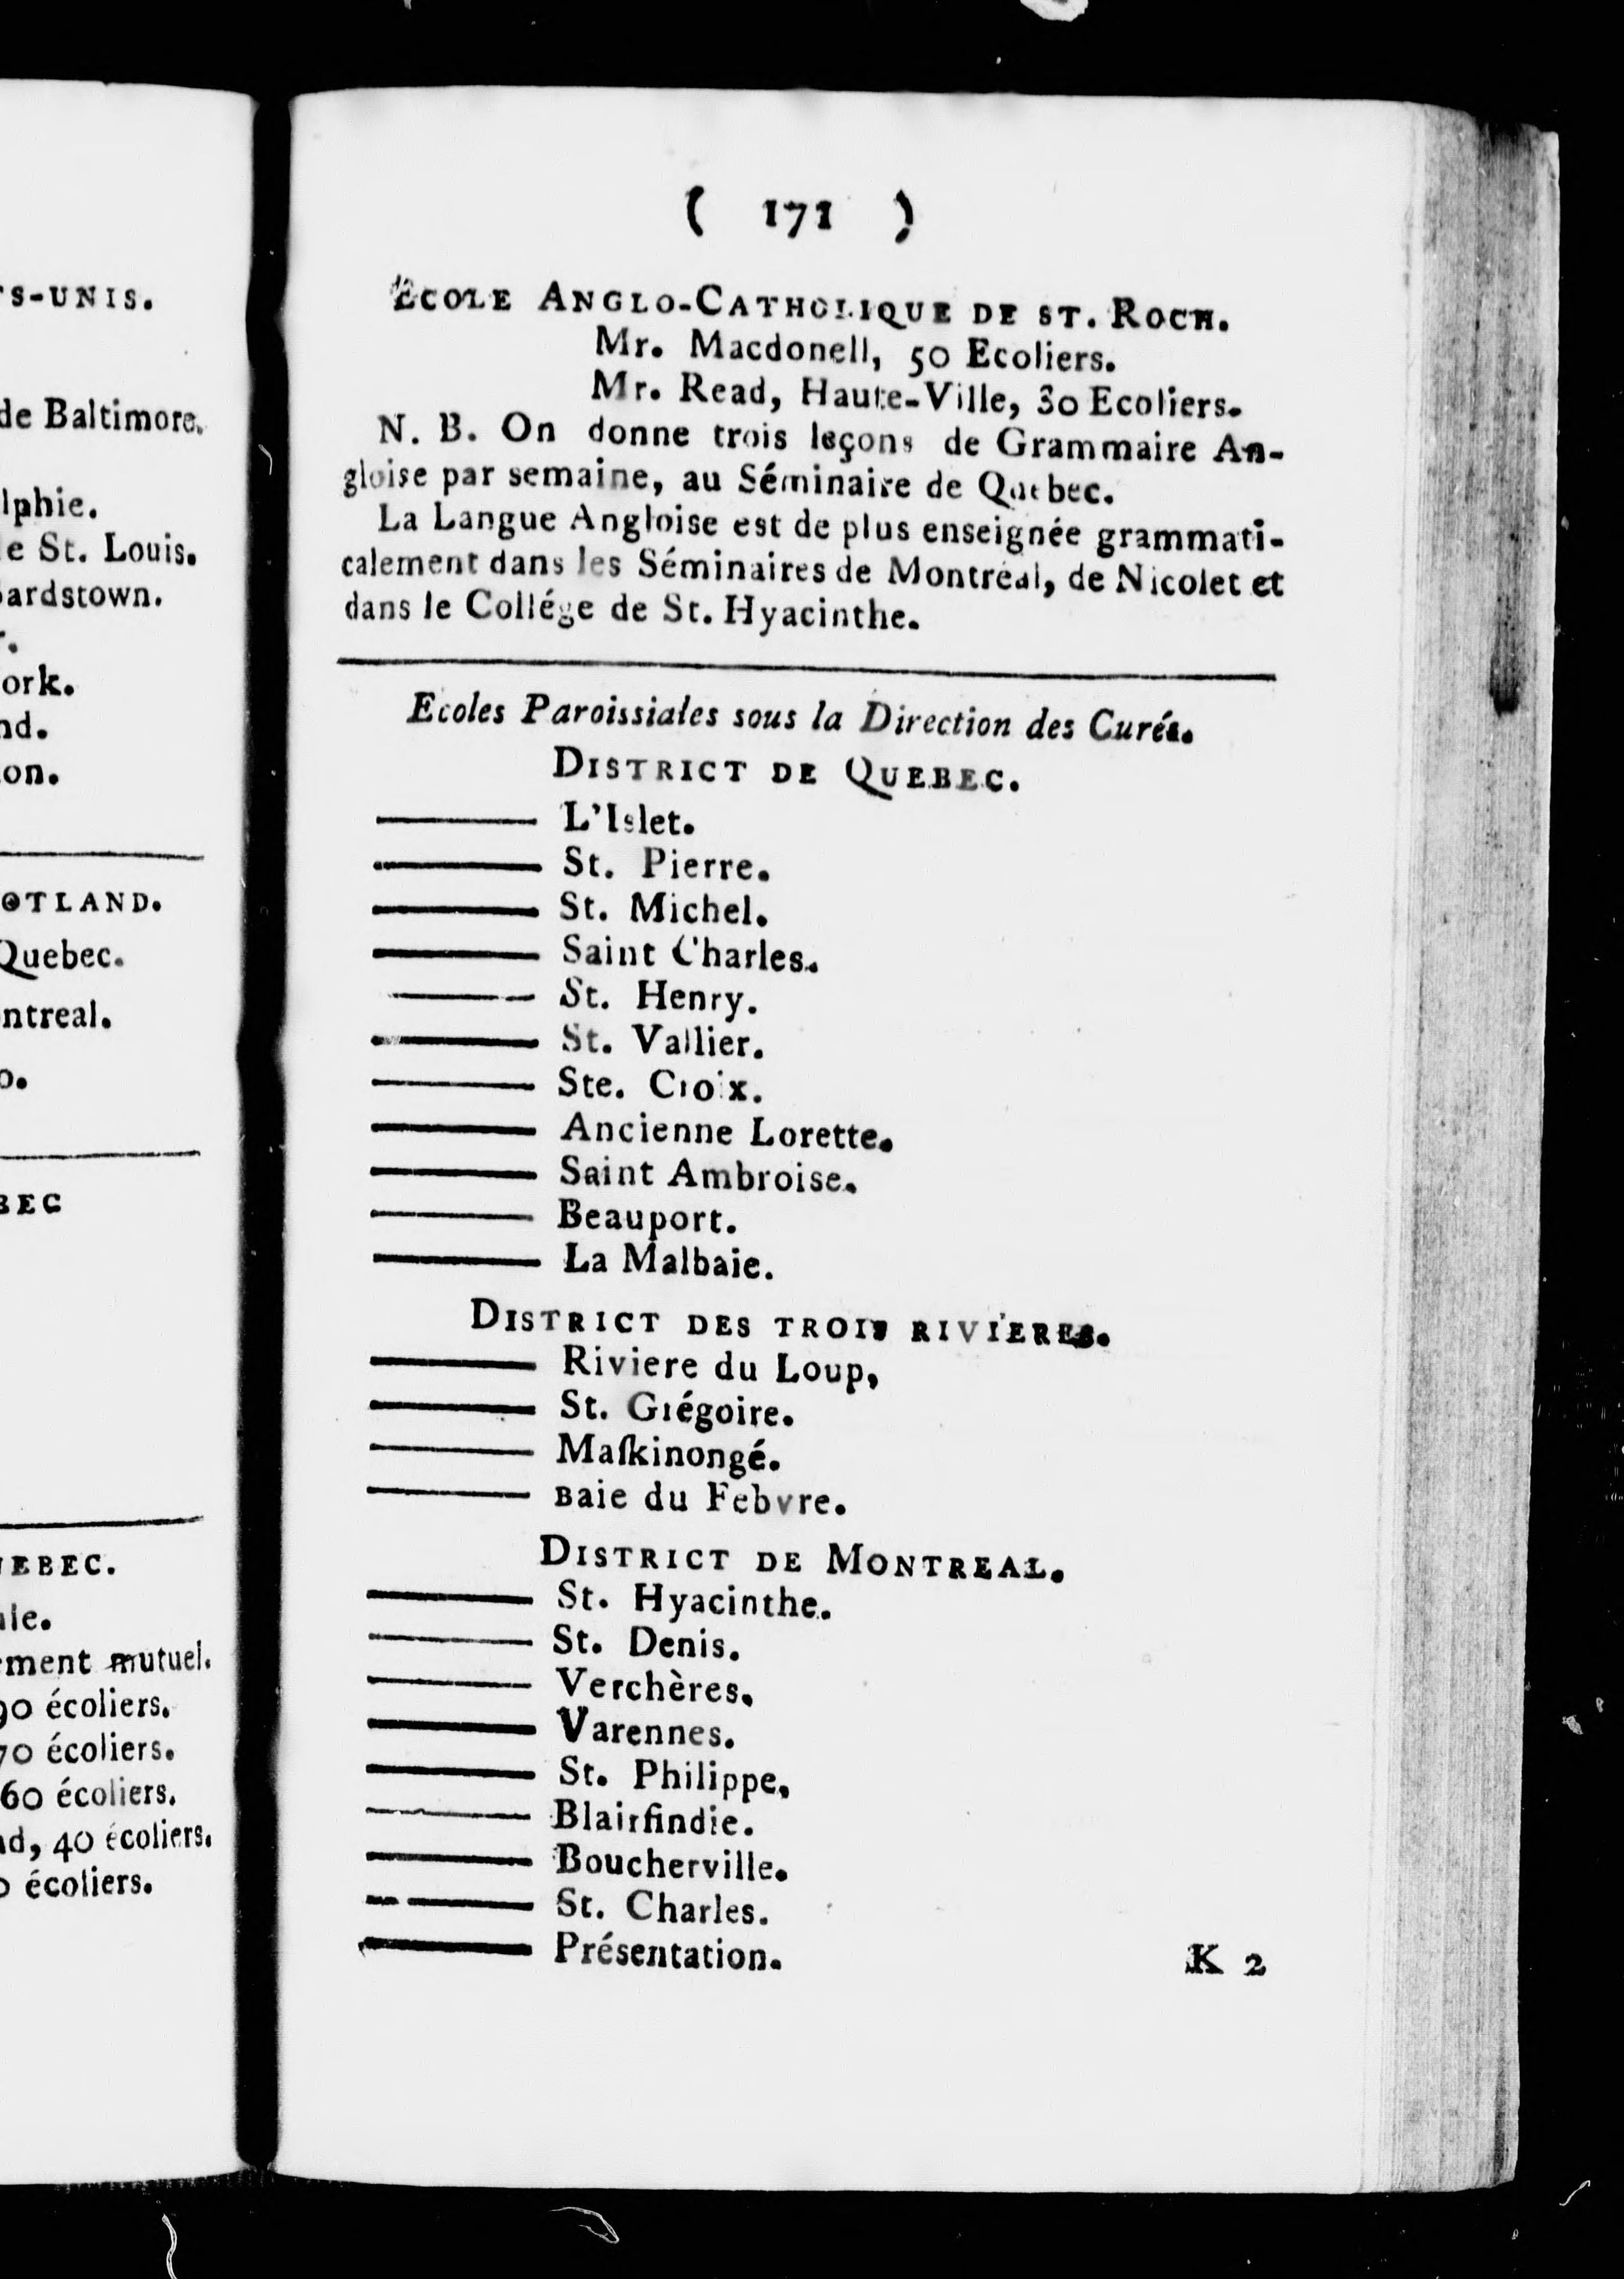 S-UNIS.
de Baltimore.
lphie.
e St. Louis.
ardstown.
ork.
nd.
on.
OTLAND.
Quebec.
ntreal.
o.
BEC
UEBEC.
ment mutuel.
90 écoliers.
70 écoliers.
60 écoliers.
nd, 40 écoliers.
0 écoliers.
( 171 )
ECOLE ANGLO-CATHOLIQUE DE ST. ROCH.
Mr. Macdonell, 50 Ecoliers.
Mr. Read, Haute-Ville, 30 Ecoliers.
N. B. On donne trois leçons de Grammaire An-
gloise par semaine, au Séminaire de Quebec.
La Langue Angloise est de plus enseignée grammati-
calement dans les Séminaires de Montréal, de Nicolet et
dans le Collége de St. Hyacinthe.
Ecoles Paroissiales sous la Direction des Curés.
DISTRICT DE QUEBEC.
——— L'Islet.
——— St. Pierre.
——— St. Michel.
——— Saint Charles.
——— St. Henry.
——— St. Vallier.
——— Ste. Croix.
——— Ancienne Lorette.
——— Saint Ambroise.
——— Beauport.
——— La Malbaie.
DISTRICT DES TROIS RIVIERES.
——— Riviere du Loup,
——— St. Grégoire.
——— Maſkinongé.
——— Baie du Febvre.
DISTRICT DE MONTREAL.
——— St. Hyacinthe.
——— St. Denis.
——— Verchères.
——— Varennes.
——— St. Philippe,
——— Blairfindie.
——— Boucherville.
——— St. Charles.
——— Présentation.
K 2